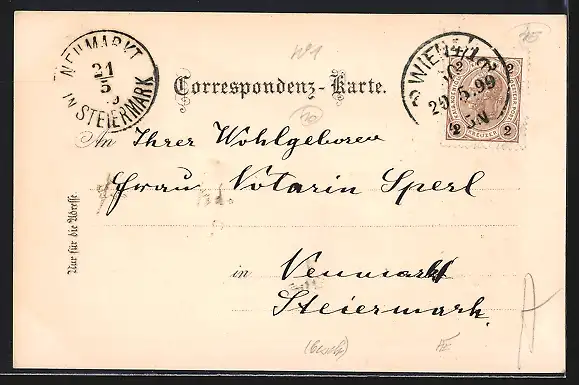 NEUMARKT
21
5
IN STEIERMARK
WIEN 4/1
20.5.99
2 2
2 KREUZER 2
Correspondenz-Karte.
An Ihrer Wohlgeboren
Frau Notarin Sperl
in Neumarkt
Steiermark.
Nur für die Adresse.